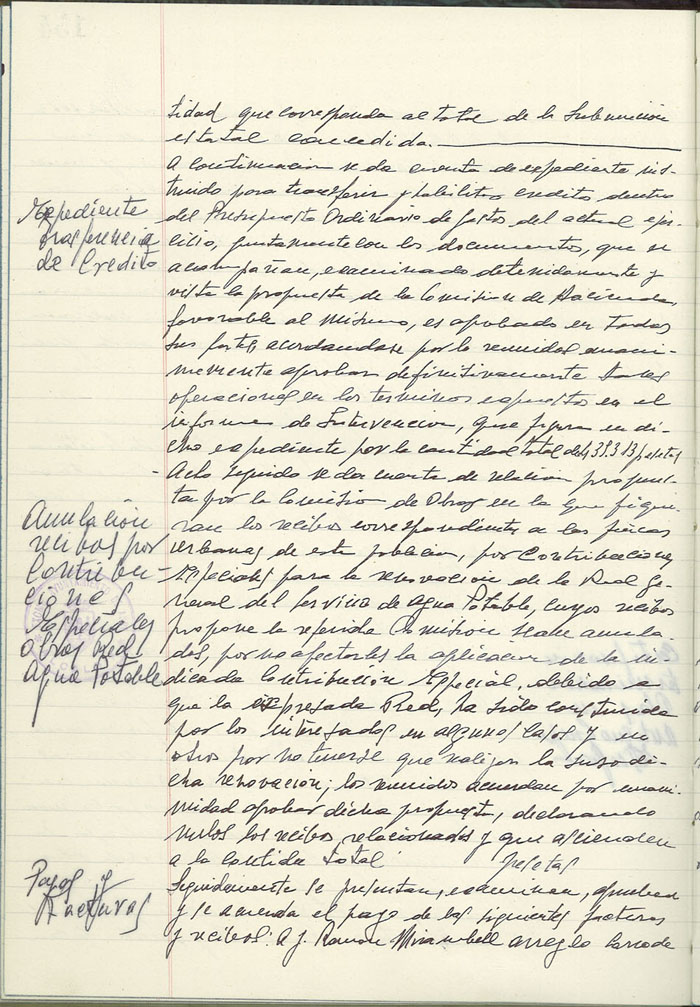 tidad que corresponda al total de la Subvención
estatal concedida.
Expediente
trasferencia
de Credito
A continuacion se da cuenta de expediente ins-
truido para transferir y habilitar credito dentro
del Presupuesto Ordinario de gastos del actual ejer-
cicio, juntamente con los documentos, que se
acompañan, examinado detenidamente y
vista la propuesta de la Comision de Hacienda,
favorable al mismo, es aprobado en todas
sus partes acordandose por los reunidos unani-
memente aprobar definitivamente tales
operaciones en los terminos expuestos en el
informe de Intervencion, que figura en di-
cho expediente por la cantidad total de pesetas
Anulación
recibos por
Contribu-
ciones
Especiales
obras red
Agua Potable
Acto seguido se da cuenta de relacion propues-
ta por la Comision de Obras en la que figu-
ran los recibos correspondientes a las fincas
urbanas de esta poblacion, por Contribuciones
Especiales para la renovacion de la Red Ge-
neral del Servicio de Agua Potable, cuyos recibos
propone la referida Comision sean anula-
dos, por no afectarles la aplicacion de la in-
dicada Contribución Especial, debido a
que la expresada Red, ha sido construida
por los interesados en algunos casos y en
otros por no tenerse que realizar la susodi-
cha renovación; los reunidos acuerdan por unani-
midad aprobar dicha propuesta, declarando
nulos los recibos relacionados y que ascienden
a la cantidad total pesetas
Pagos y
Facturas
Seguidamente se presentan, examinan, aprueban
y se acuerda el pago de las siguientes facturas
y recibos: A J. Ramon Mirambell arreglo carro de